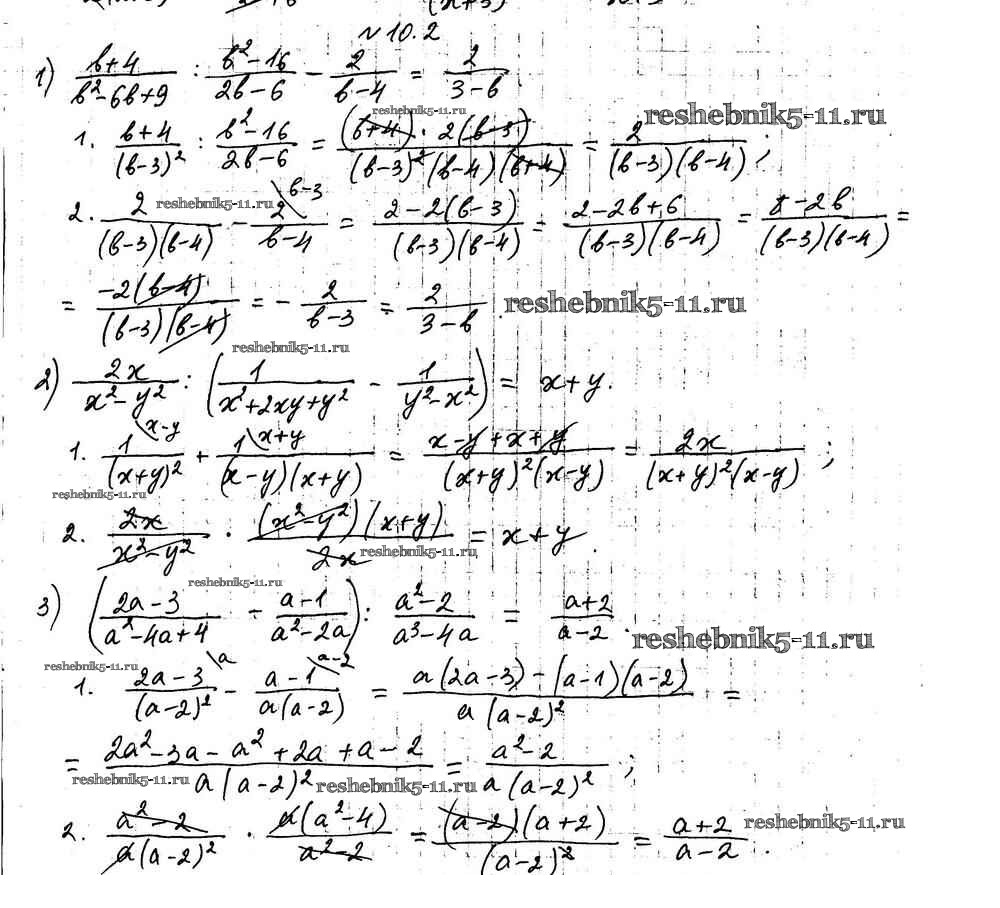 №10.2
1) (b+4)/(b²-6b+9) : (b²-16)/(2b-6) - 2/(b-4) = 2/(3-b).
reshebnik5-11.ru
reshebnik5-11.ru
1. (b+4)/(b-3)² : (b²-16)/(2b-6) = ((b+4)·2(b-3))/((b-3)²(b-4)(b+4)) = 2/((b-3)(b-4));
reshebnik5-11.ru
2. 2/((b-3)(b-4)) - 2\b-3/(b-4) = (2-2(b-3))/((b-3)(b-4)) = (2-2b+6)/((b-3)(b-4)) = (8-2b)/((b-3)(b-4)) =
= (-2(b-4))/((b-3)(b-4)) = -2/(b-3) = 2/(3-b).
reshebnik5-11.ru
reshebnik5-11.ru
2) 2x/(x²-y²) : (1/(x²+2xy+y²) - 1/(y²-x²)) = x+y.
1. 1\x-y/(x+y)² + 1\x+y/((x-y)(x+y)) = (x-y+x+y)/((x+y)²(x-y)) = 2x/((x+y)²(x-y));
reshebnik5-11.ru
2. 2x/(x²-y²) · ((x²-y²)(x+y))/2x = x+y.
reshebnik5-11.ru
reshebnik5-11.ru
3) ((2a-3)/(a²-4a+4) - (a-1)/(a²-2a)) : (a²-2)/(a³-4a) = (a+2)/(a-2).
reshebnik5-11.ru
reshebnik5-11.ru
1. (2a-3)\a/(a-2)² - (a-1)\a-2/(a(a-2)) = (a(2a-3)-(a-1)(a-2))/(a(a-2)²) =
= (2a²-3a-a²+2a+a-2)/(a(a-2)²) = (a²-2)/(a(a-2)²);
reshebnik5-11.ru
reshebnik5-11.ru
2. (a²-2)/(a(a-2)²) · (a(a²-4))/(a²-2) = ((a-2)(a+2))/(a-2)² = (a+2)/(a-2).
reshebnik5-11.ru